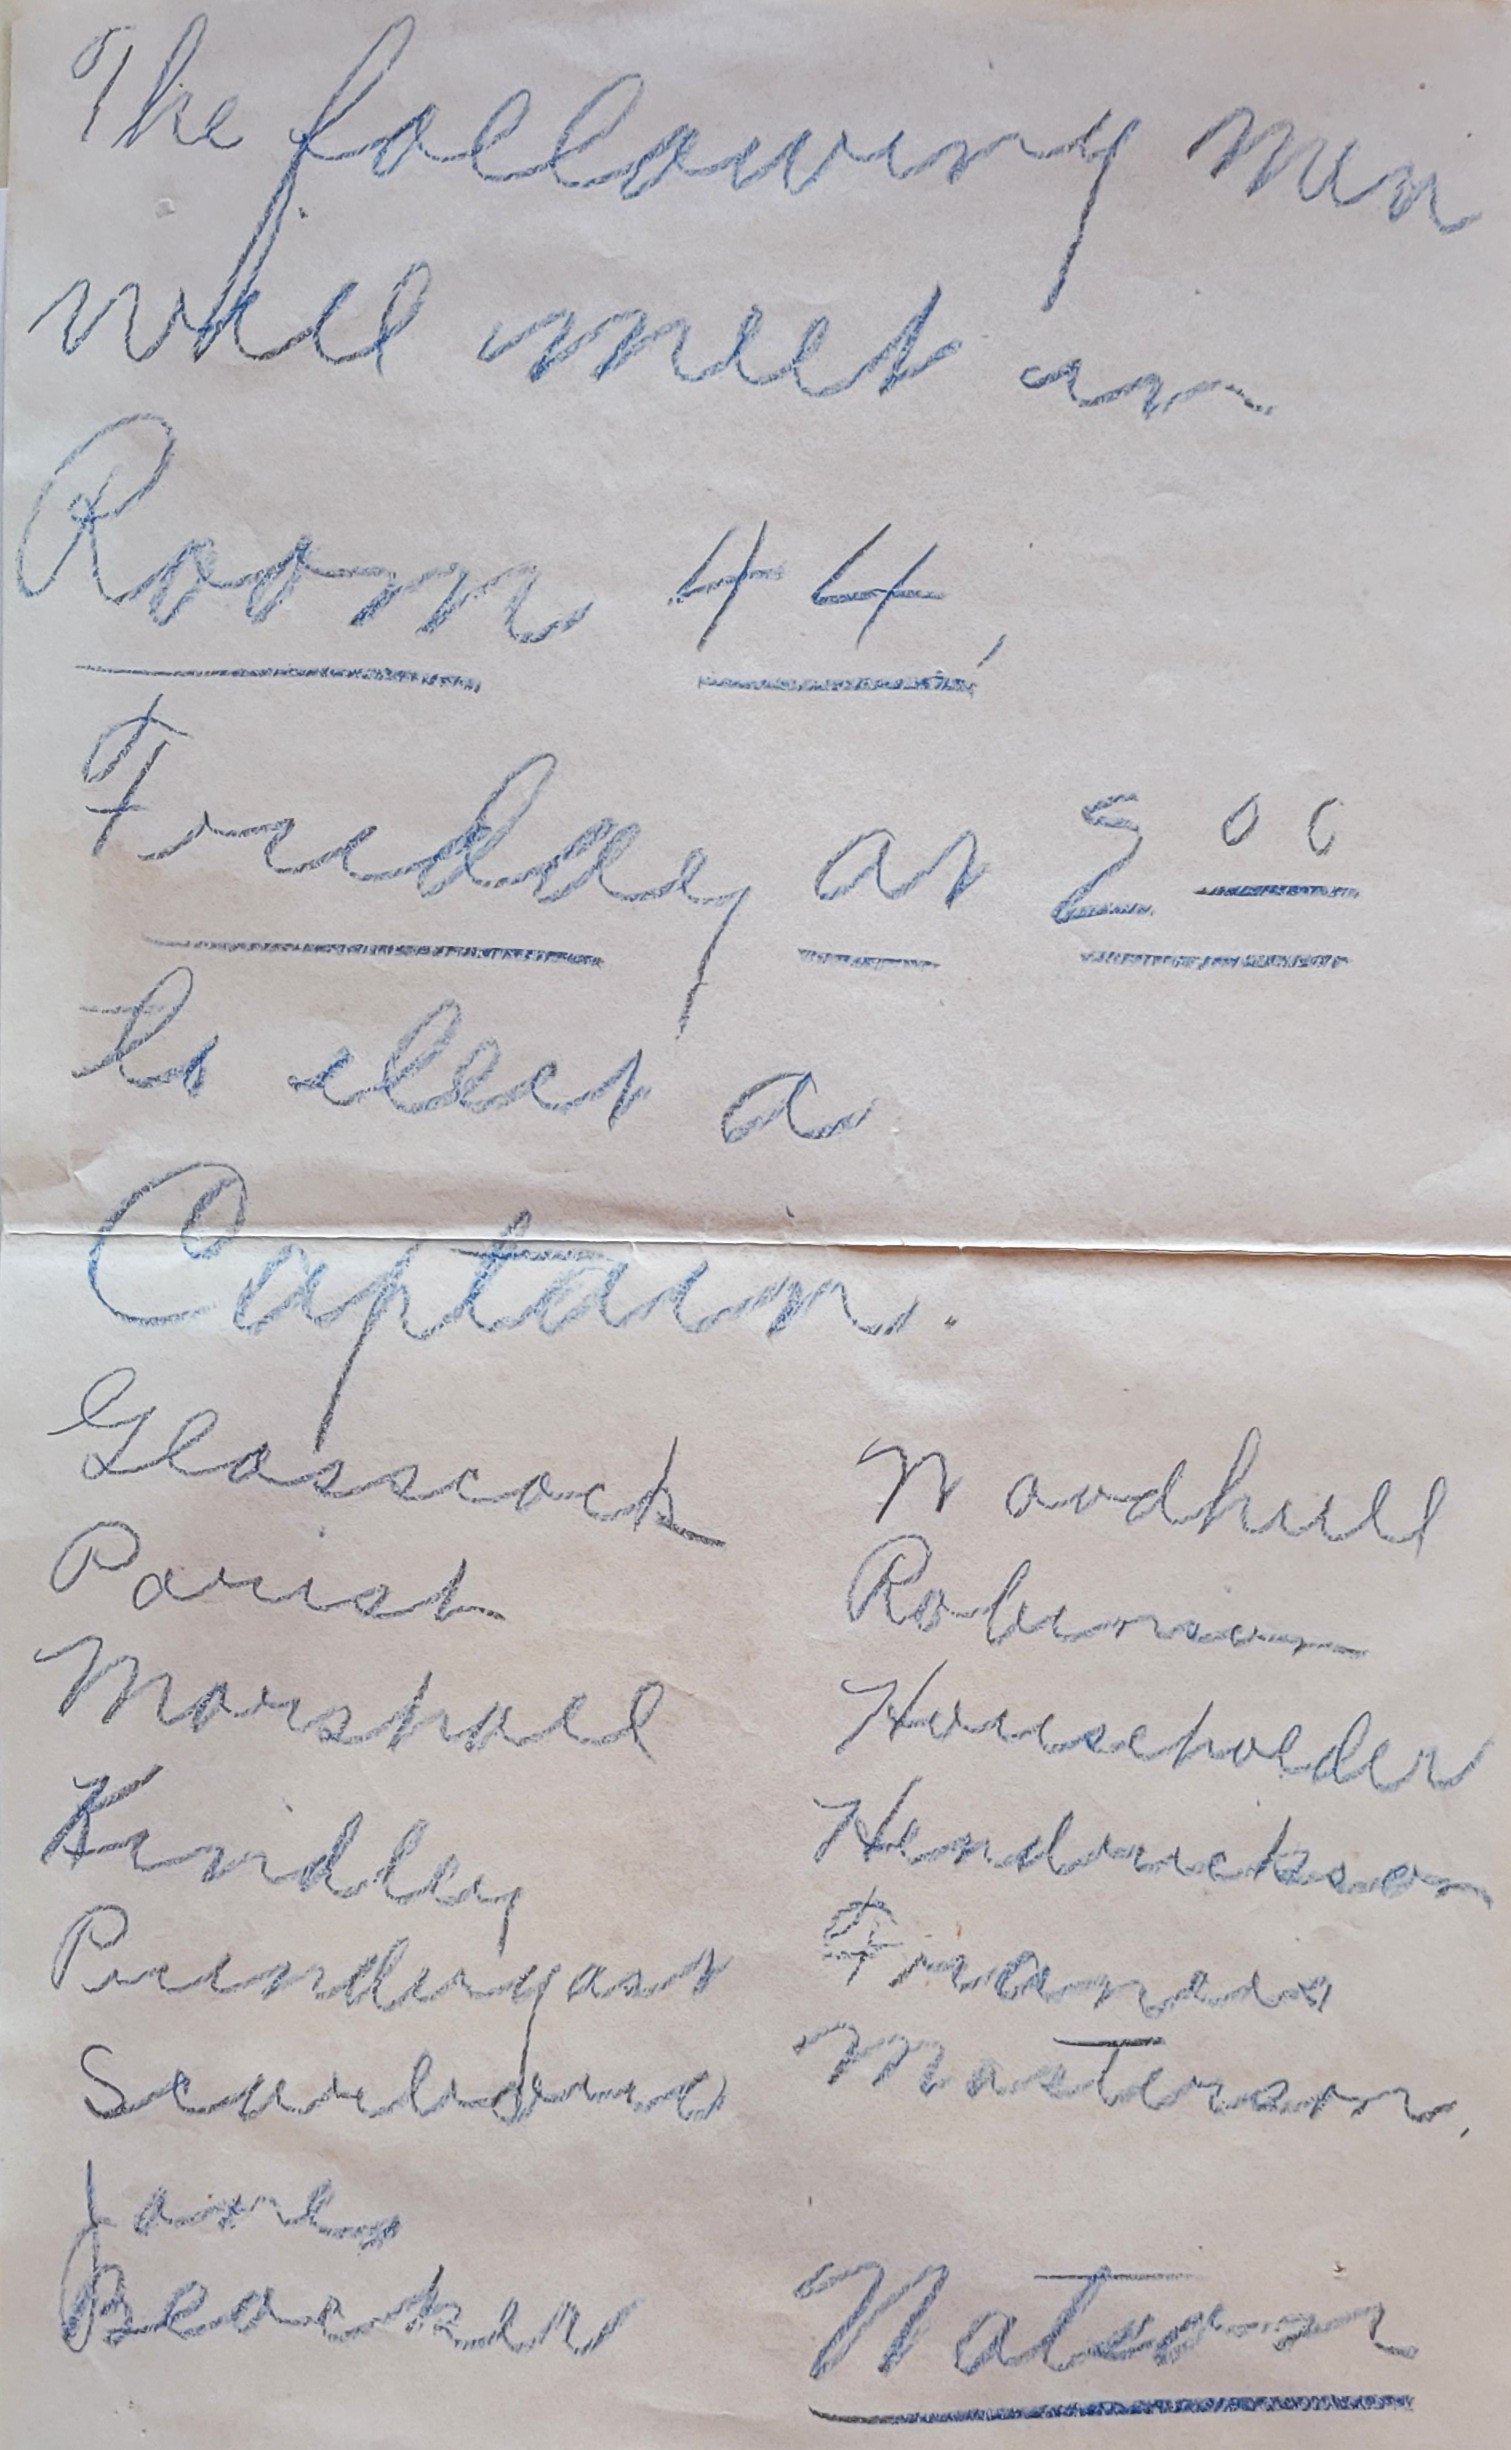 The following men
will meet in
Room 44,
Friday at 8 00
to elect a
Captain.
Glasscock
Parish
Marshall
Kindley
Prendergast
Jones
Woodhull
Robinson
Householder
Hendrickson
Francis
Masterson.